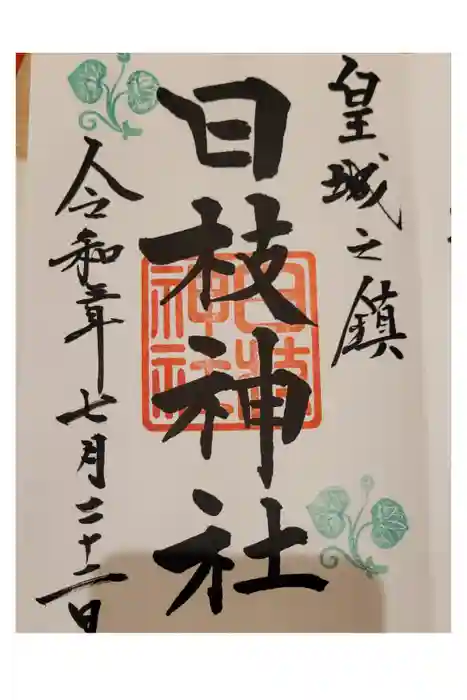 皇城之鎮
日枝神社
日枝
神社
令和年七月二十二日